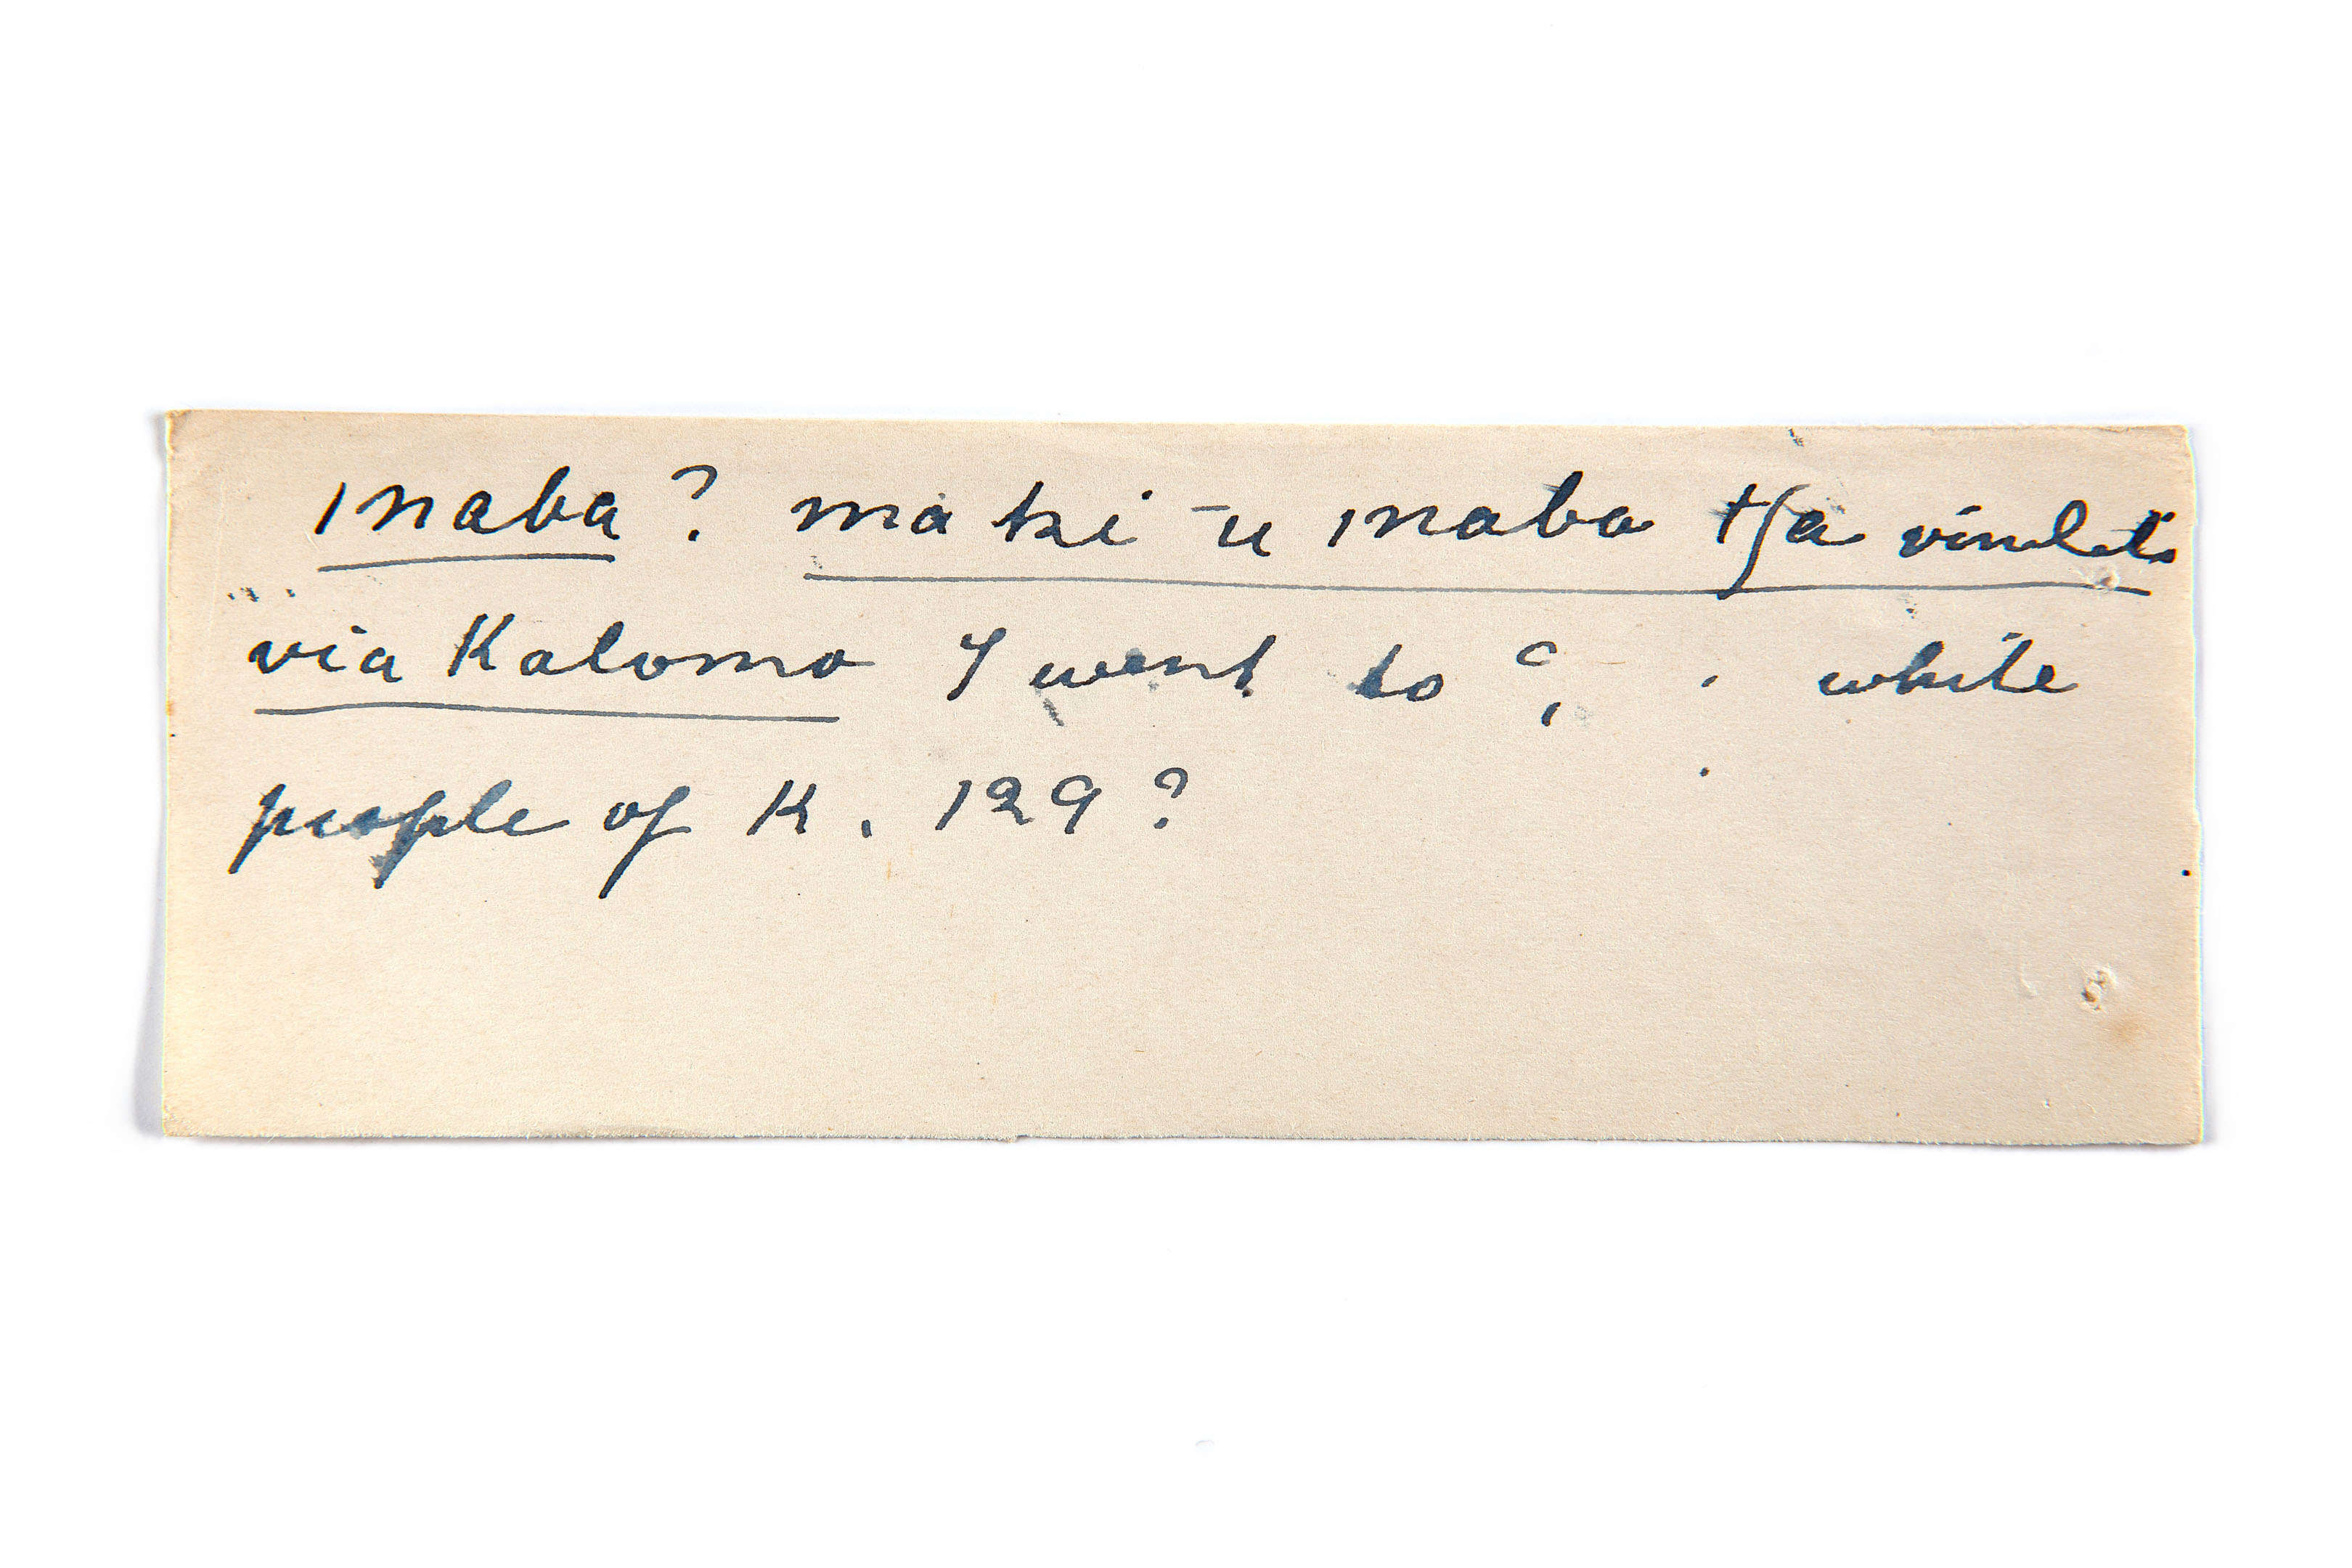 ınaba? ma ki -u ınaba tʃa vindele
via Kalomo I went to ? , . white
people of K. 129?